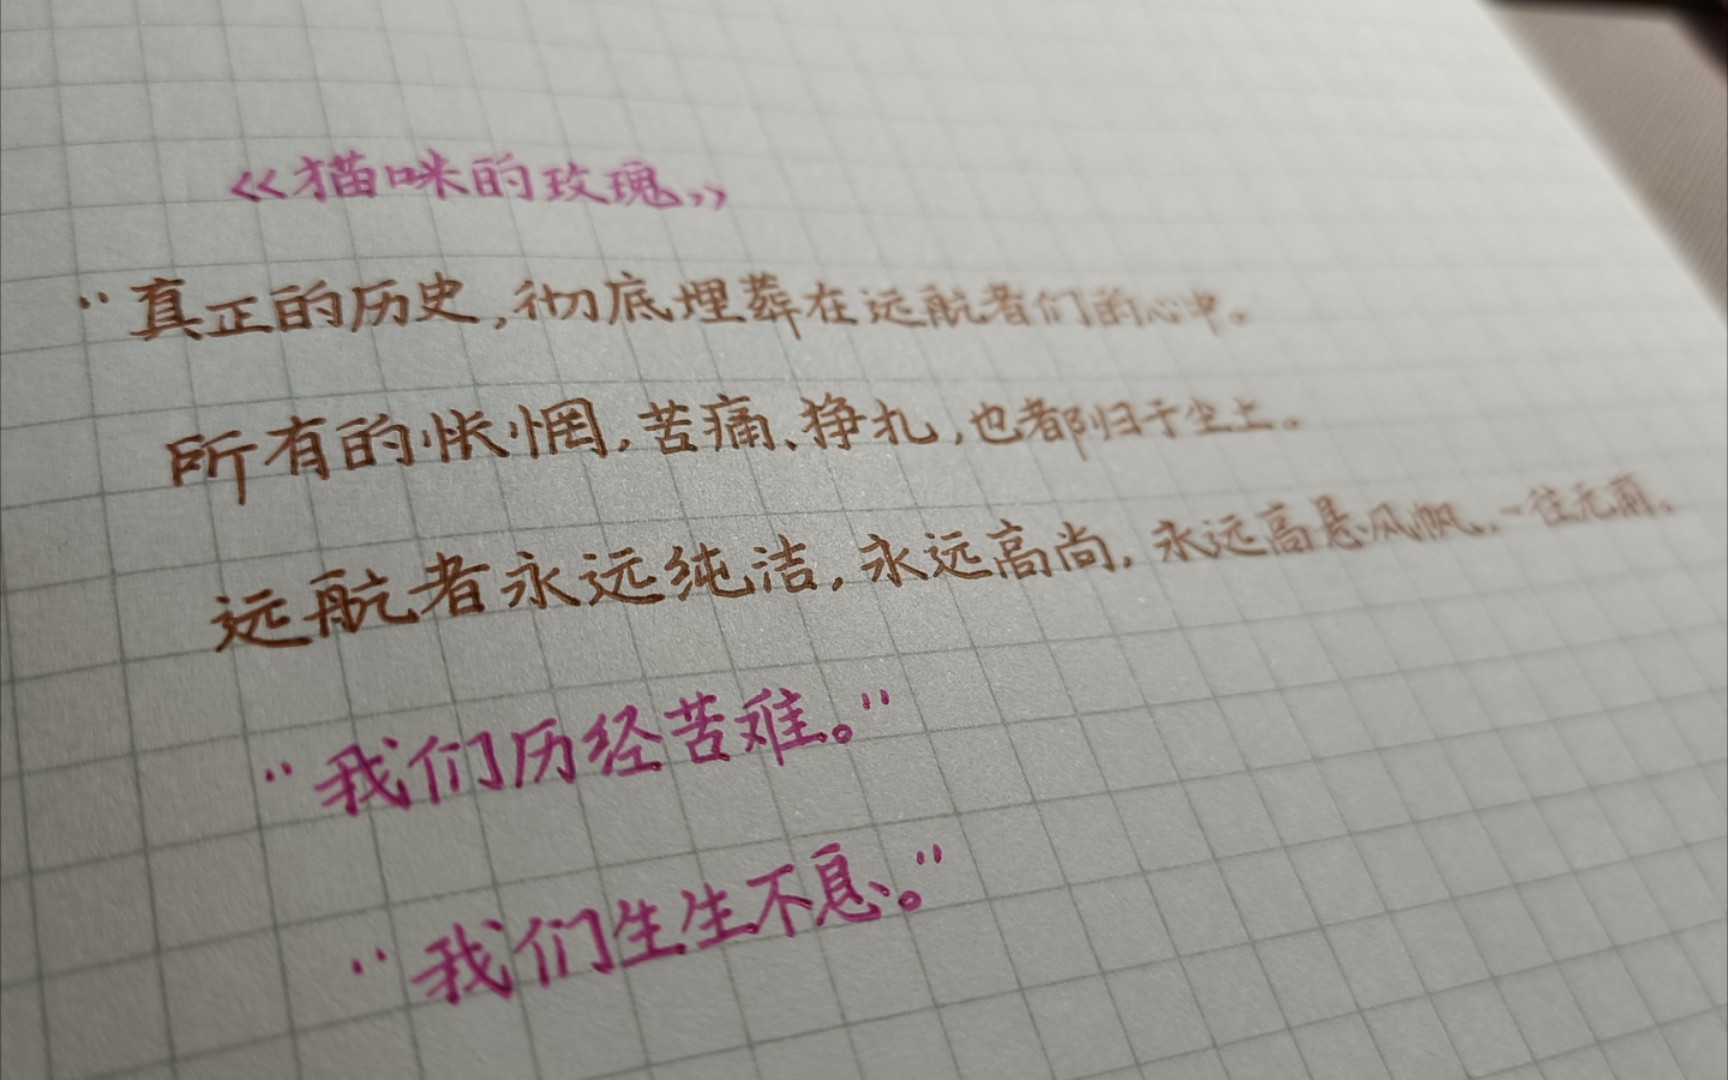 《猫咪的玫瑰》
“真正的历史，彻底埋葬在远航者们的心中。
所有的怅惘，苦痛、挣扎，也都归于尘土。
远航者永远纯洁，永远高尚，永远高悬风帆，一往无前。
“我们历经苦难。”
“我们生生不息。”